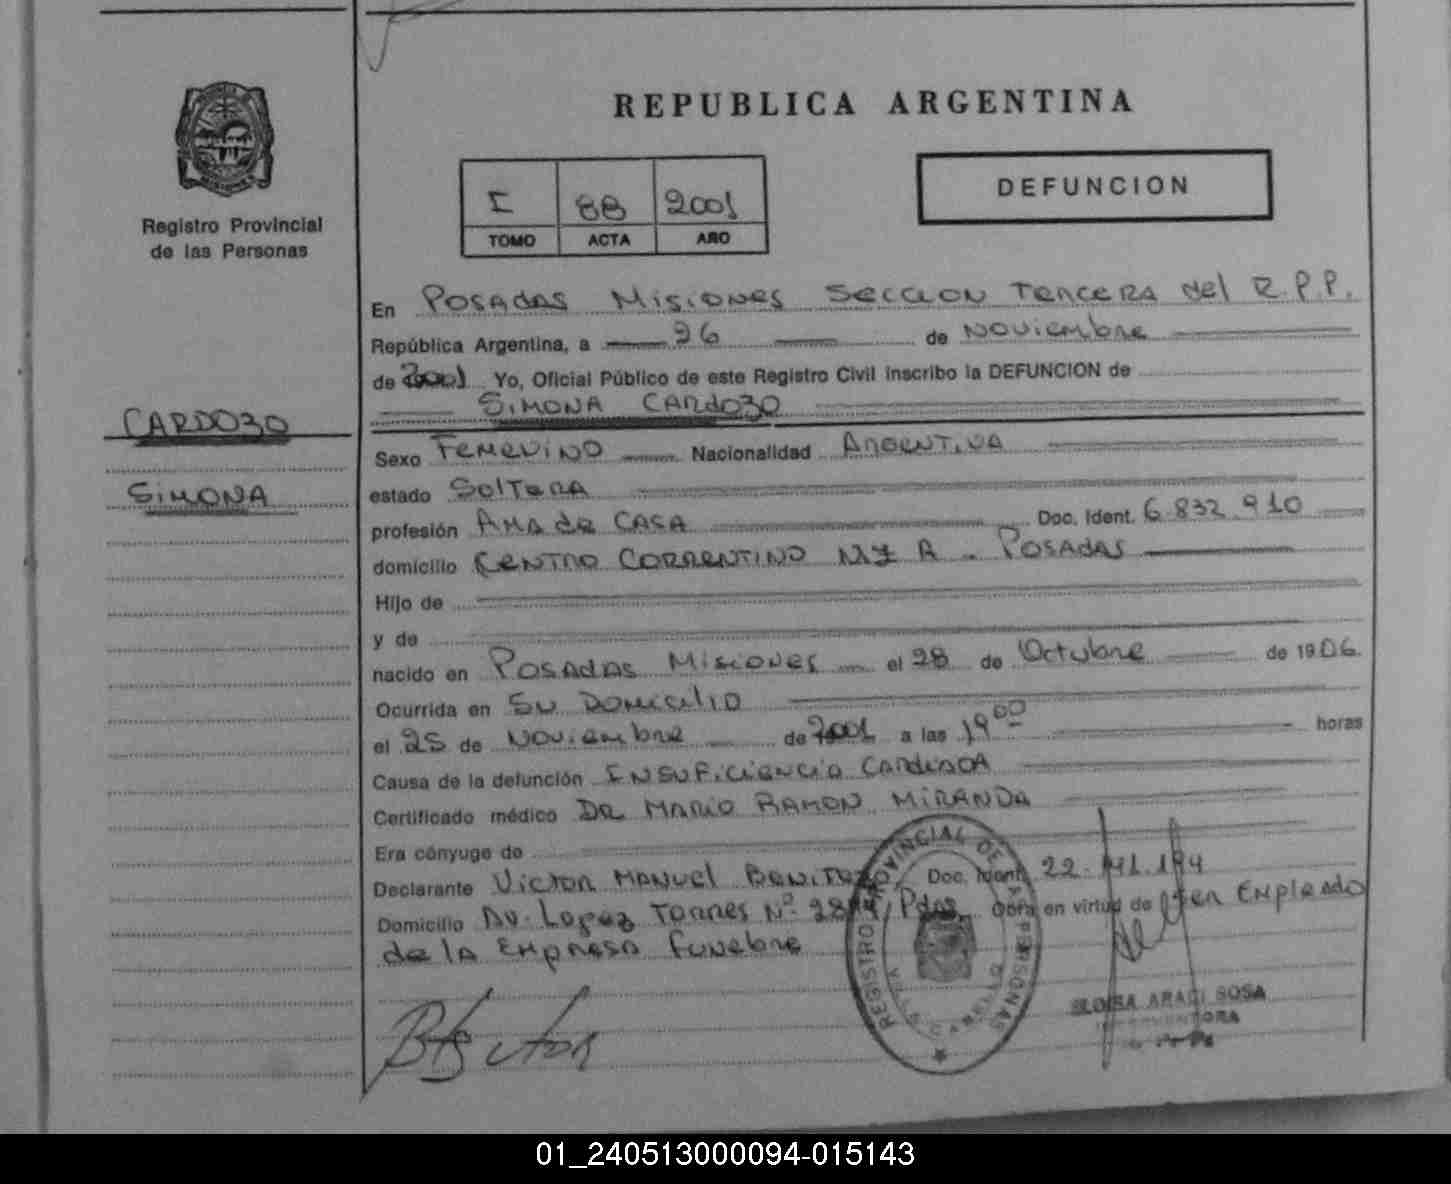 REPUBLICA ARGENTINA
Registro Provincial
de las Personas
I 88 2001
TOMO ACTA AÑO
DEFUNCION
En Posadas Misiones Seccion Tercera del R.P.P.
República Argentina, a 26 de Noviembre
de 2001 Yo, Oficial Público de este Registro Civil inscribo la DEFUNCION de
SIMONA CARDOZO
CARDOZO
SIMONA
Sexo Femenino Nacionalidad Argentina
estado Soltera
profesión Ama de Casa Doc. Ident. 6 832 910
domicilio Centro Correntino Mz A - Posadas
Hijo de
y de
nacido en Posadas Misiones el 28 de Octubre de 1906
Ocurrida en Su Domicilio
el 25 de Noviembre de 2001 a las 19 00 horas
Causa de la defunción Insuficiencia Cardiaca
Certificado médico DR Mario Ramon Miranda
Era cónyuge de
Declarante Victor Manuel Benitez Doc. Ident. 22.141.194
Domicilio Av. Lopez Torres Nº Pdas. Obra en virtud de Ser Empleado
de la Empresa Funebre
REGISTRO PROVINCIAL DE LAS PERSONAS
VILLA CABELLO
ELOISA ARACI SOSA
01_240513000094-015143